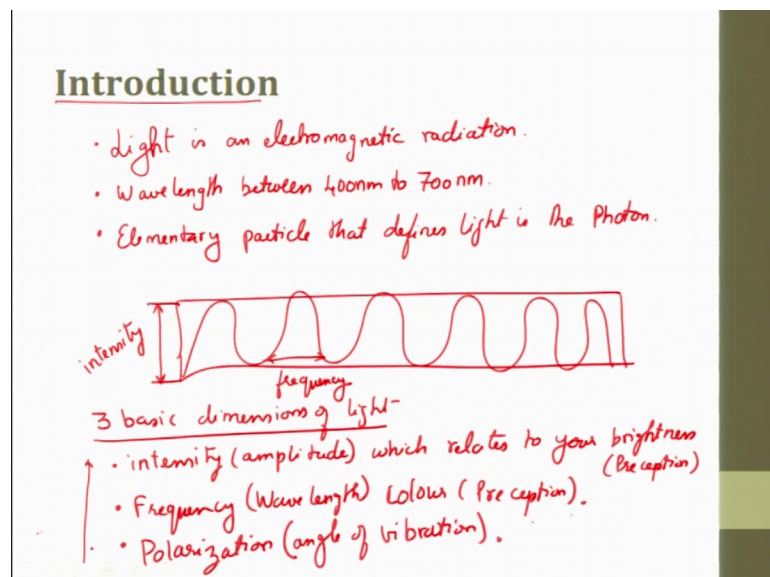 Introduction
• Light is an electromagnetic radiation.
• Wavelength between 400nm to 700nm.
• Elementary particle that defines light is the Photon.
intensity
frequency
3 basic dimensions of light
• intensity (amplitude) which relates to your brightness
(Preception)
• Frequency (Wavelength) Colour (Preception).
• Polarization (angle of vibration).